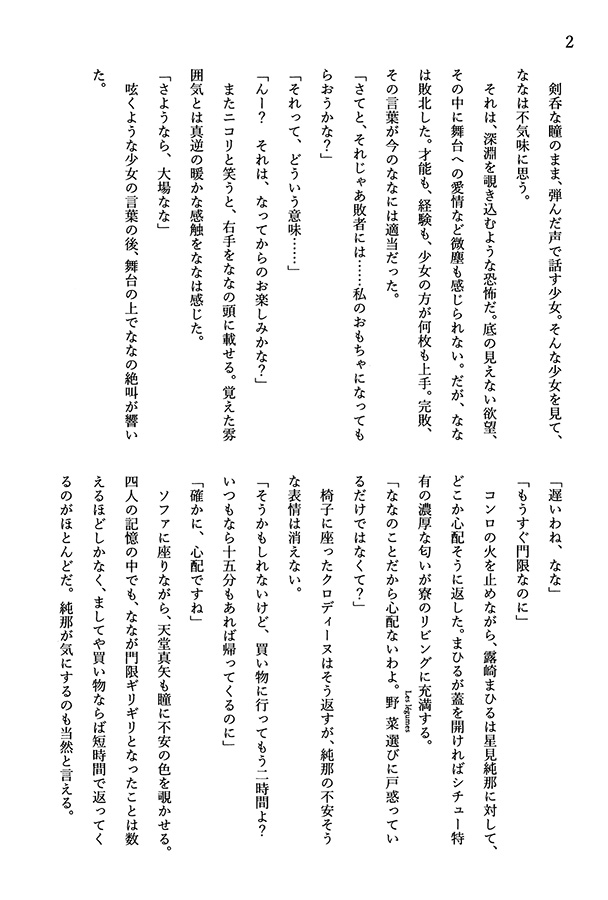 2
剣呑な瞳のまま、弾んだ声で話す少女。そんな少女を見て、
ななは不気味に思う。
それは、深淵を覗き込むような恐怖だ。底の見えない欲望、
その中に舞台への愛情など微塵も感じられない。だが、なな
は敗北した。才能も、経験も、少女の方が何枚も上手。完敗、
その言葉が今のななには適当だった。
「さてと、それじゃあ敗者には……私のおもちゃになっても
らおうかな？」
「それって、どういう意味……」
「んー？　それは、なってからのお楽しみかな？」
またニコリと笑うと、右手をななの頭に載せる。覚えた雰
囲気とは真逆の暖かな感触をななは感じた。
「さようなら、大場なな」
呟くような少女の言葉の後、舞台の上でななの絶叫が響い
た。
「遅いわね、なな」
「もうすぐ門限なのに」
コンロの火を止めながら、露崎まひるは星見純那に対して、
どこか心配そうに返した。まひるが蓋を開ければシチュー特
有の濃厚な匂いが寮のリビングに充満する。
「ななのことだから心配ないわよ。野菜選びに戸惑ってい
Les légumes
るだけではなくて？」
椅子に座ったクロディーヌはそう返すが、純那の不安そう
な表情は消えない。
「そうかもしれないけど、買い物に行ってもう二時間よ？
いつもなら十五分もあれば帰ってくるのに」
「確かに、心配ですね」
ソファに座りながら、天堂真矢も瞳に不安の色を覗かせる。
四人の記憶の中でも、ななが門限ギリギリとなったことは数
えるほどしかなく、ましてや買い物ならば短時間で返ってく
るのがほとんどだ。純那が気にするのも当然と言える。